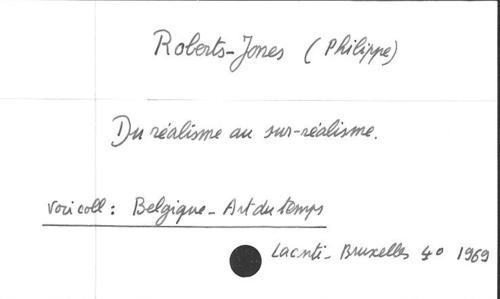 Roberts-Jones (Philippe)
Du réalisme au sur-réalisme.
Voir coll : Belgique - Art du temps
Laconti - Bruxelles 4o 1969